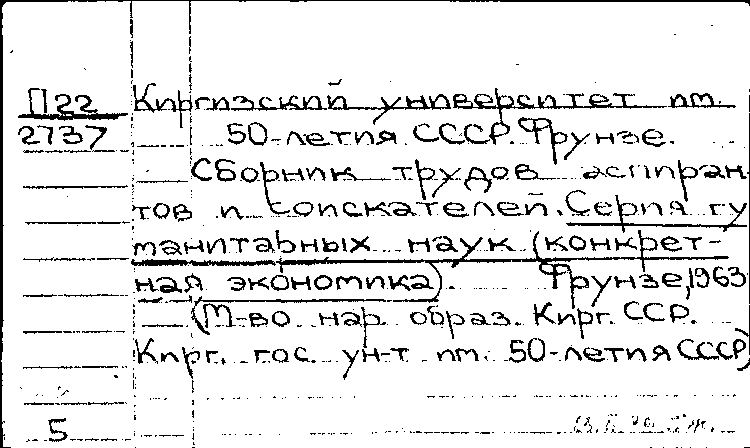 П22 Киргизский университет им.
2737 50-летия СССР. Фрунзе.
Сборник трудов аспиран-
тов и соискателей. Серия гу
манитарных наук (конкрет-
ная экономика). Фрунзе, 1963
(М-во нар. образ. Кирг. ССР.
Кирг. гос. ун-т им. 50-летия СССР)
5